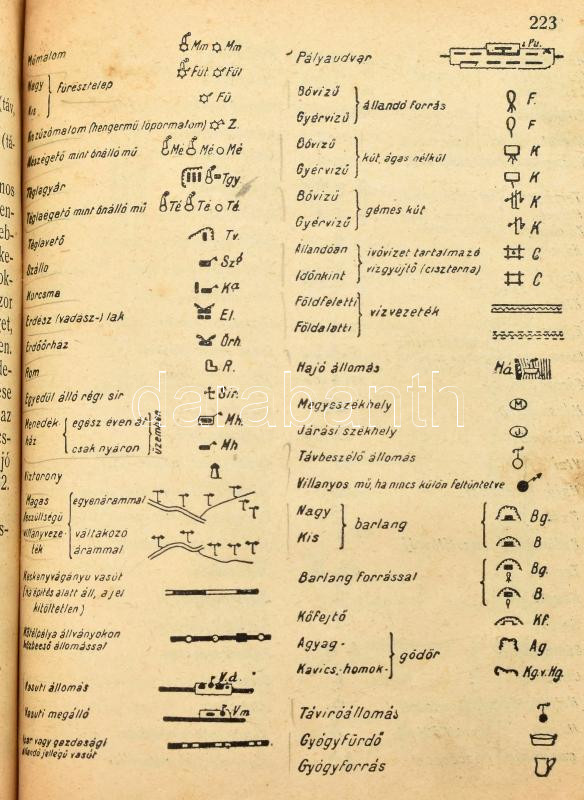 223
Műmalom Mm Mm
Nagy
Kis
Fűrésztelep
Füt Fül
Fű
Zúzómalom (hengermű lőpormalom) Z.
Mészégető mint önálló mű Mé Mé Mé
Téglagyár Tgy.
Téglaégető mint önálló mű Té Té Té.
Téglavető Tv.
Szálló Szó
Korcsma Ka
Erdész (vadász-) lak El.
Erdőőrház Örh.
Rom R.
Egyedül álló régi sír Sir.
Menedék-
ház
egész éven át
csak nyáron
üzemben
Mh.
Mh
Víztorony
Magas
feszültségű
villanyveze-
ték
egyenárammal
váltakozó
árammal
Keskenyvágányú vasút
(ha építés alatt áll, a jel
kitöltetlen)
Kötélpálya állványokon
közbeeső állomással
Vasuti állomás V.á.
Vasuti megálló Vm.
Ipar vagy gazdasági
állandó jellegű vasút
Pályaudvar Pu.
Bővizű
Gyérvizű
állandó forrás
F.
F
Bővizű
Gyérvizű
kút, ágas nélkül
K
K
Bővizű
Gyérvizű
gémes kút
K
K
Állandóan
Időnkint
ivóvizet tartalmazó
vízgyűjtő (ciszterna)
C
C
Földfeletti
Földalatti
vízvezeték
Hajó állomás Há
Megyeszékhely M
Járási székhely J.
Távbeszélő állomás
Villanyos mű, ha nincs külön feltüntetve
Nagy
Kis
barlang
Bg.
B
Barlang forrással
Bg.
B.
Kőfejtő Kf.
Agyag-
Kavics,-homok-
gödör
Ag
Kg.v.Hg.
Táviróállomás
Gyógyfürdő
Gyógyforrás
darabanth